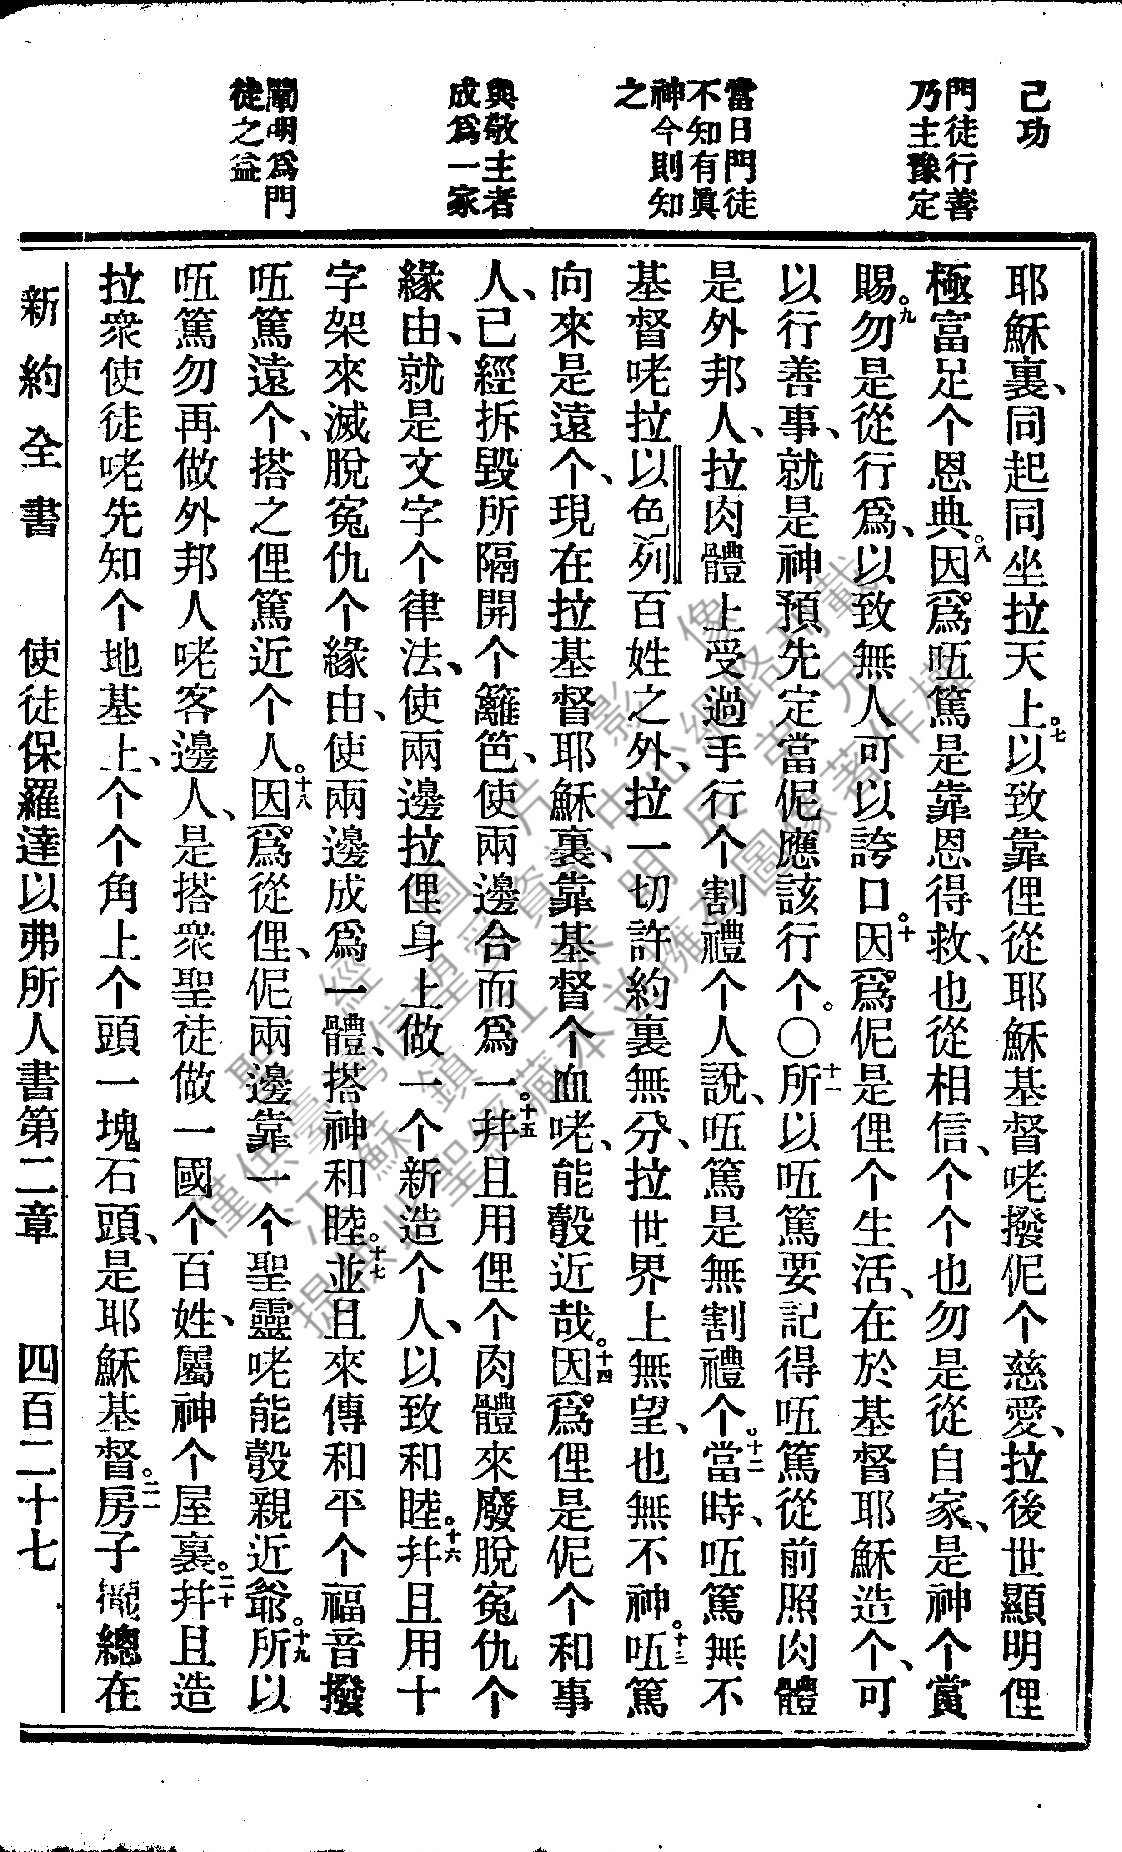 己功
門徒行善
乃主豫定
當日門徒
不知有眞
神今則知
之
與敬主者
成爲一家
闡明爲門
徒之益
耶穌裏、同起同坐拉天上。七以致靠俚從耶穌基督咾撥伲个慈愛、拉後世顯明俚
極富足个恩典。八因爲㕶篤是靠恩得救、也從相信、个个也勿是從自家、是神个賞
賜。九勿是從行爲、以致無人可以誇口。十因爲伲是俚个生活、在於基督耶穌造个、可
以行善事、就是神預先定當伲應該行个。〇十一所以㕶篤要記得㕶篤從前照肉體
是外邦人、拉肉體上受過手行个割禮个人說、㕶篤是無割禮个。十二當時、㕶篤無不
基督咾拉以色列百姓之外、拉一切許約裏無分、拉世界上無望、也無不神。十三㕶篤
向來是遠个、現在拉基督耶穌裏、靠基督个血咾、能彀近哉。十四因爲俚是伲个和事
人、已經拆毀所隔開个籬笆、使兩邊合而爲一。十五幷且用俚个肉體來廢脫寃仇个
緣由、就是文字个律法、使兩邊拉俚身上做一个新造个人、以致和睦。十六幷且用十
字架來滅脫寃仇个緣由、使兩邊成爲一體、搭神和睦。十七並且來傳和平个福音撥
㕶篤遠个、搭之俚篤近个人。十八因爲從俚、伲兩邊靠一个聖靈咾能彀親近爺。十九所以
㕶篤勿再做外邦人咾客邊人、是搭衆聖徒做一國个百姓、屬神个屋裏。二十幷且造
拉衆使徒咾先知个地基上、个个角上个頭一塊石頭、是耶穌基督。二一房子總在
新約全書 使徒保羅達以弗所人書第二章 四百二十七
聖經圖片影像
僅供臺灣信望愛資訊中心網路刊載
江蘇鎮江吳明辰弟兄
提供此聖經藏本並擁有圖像著作權